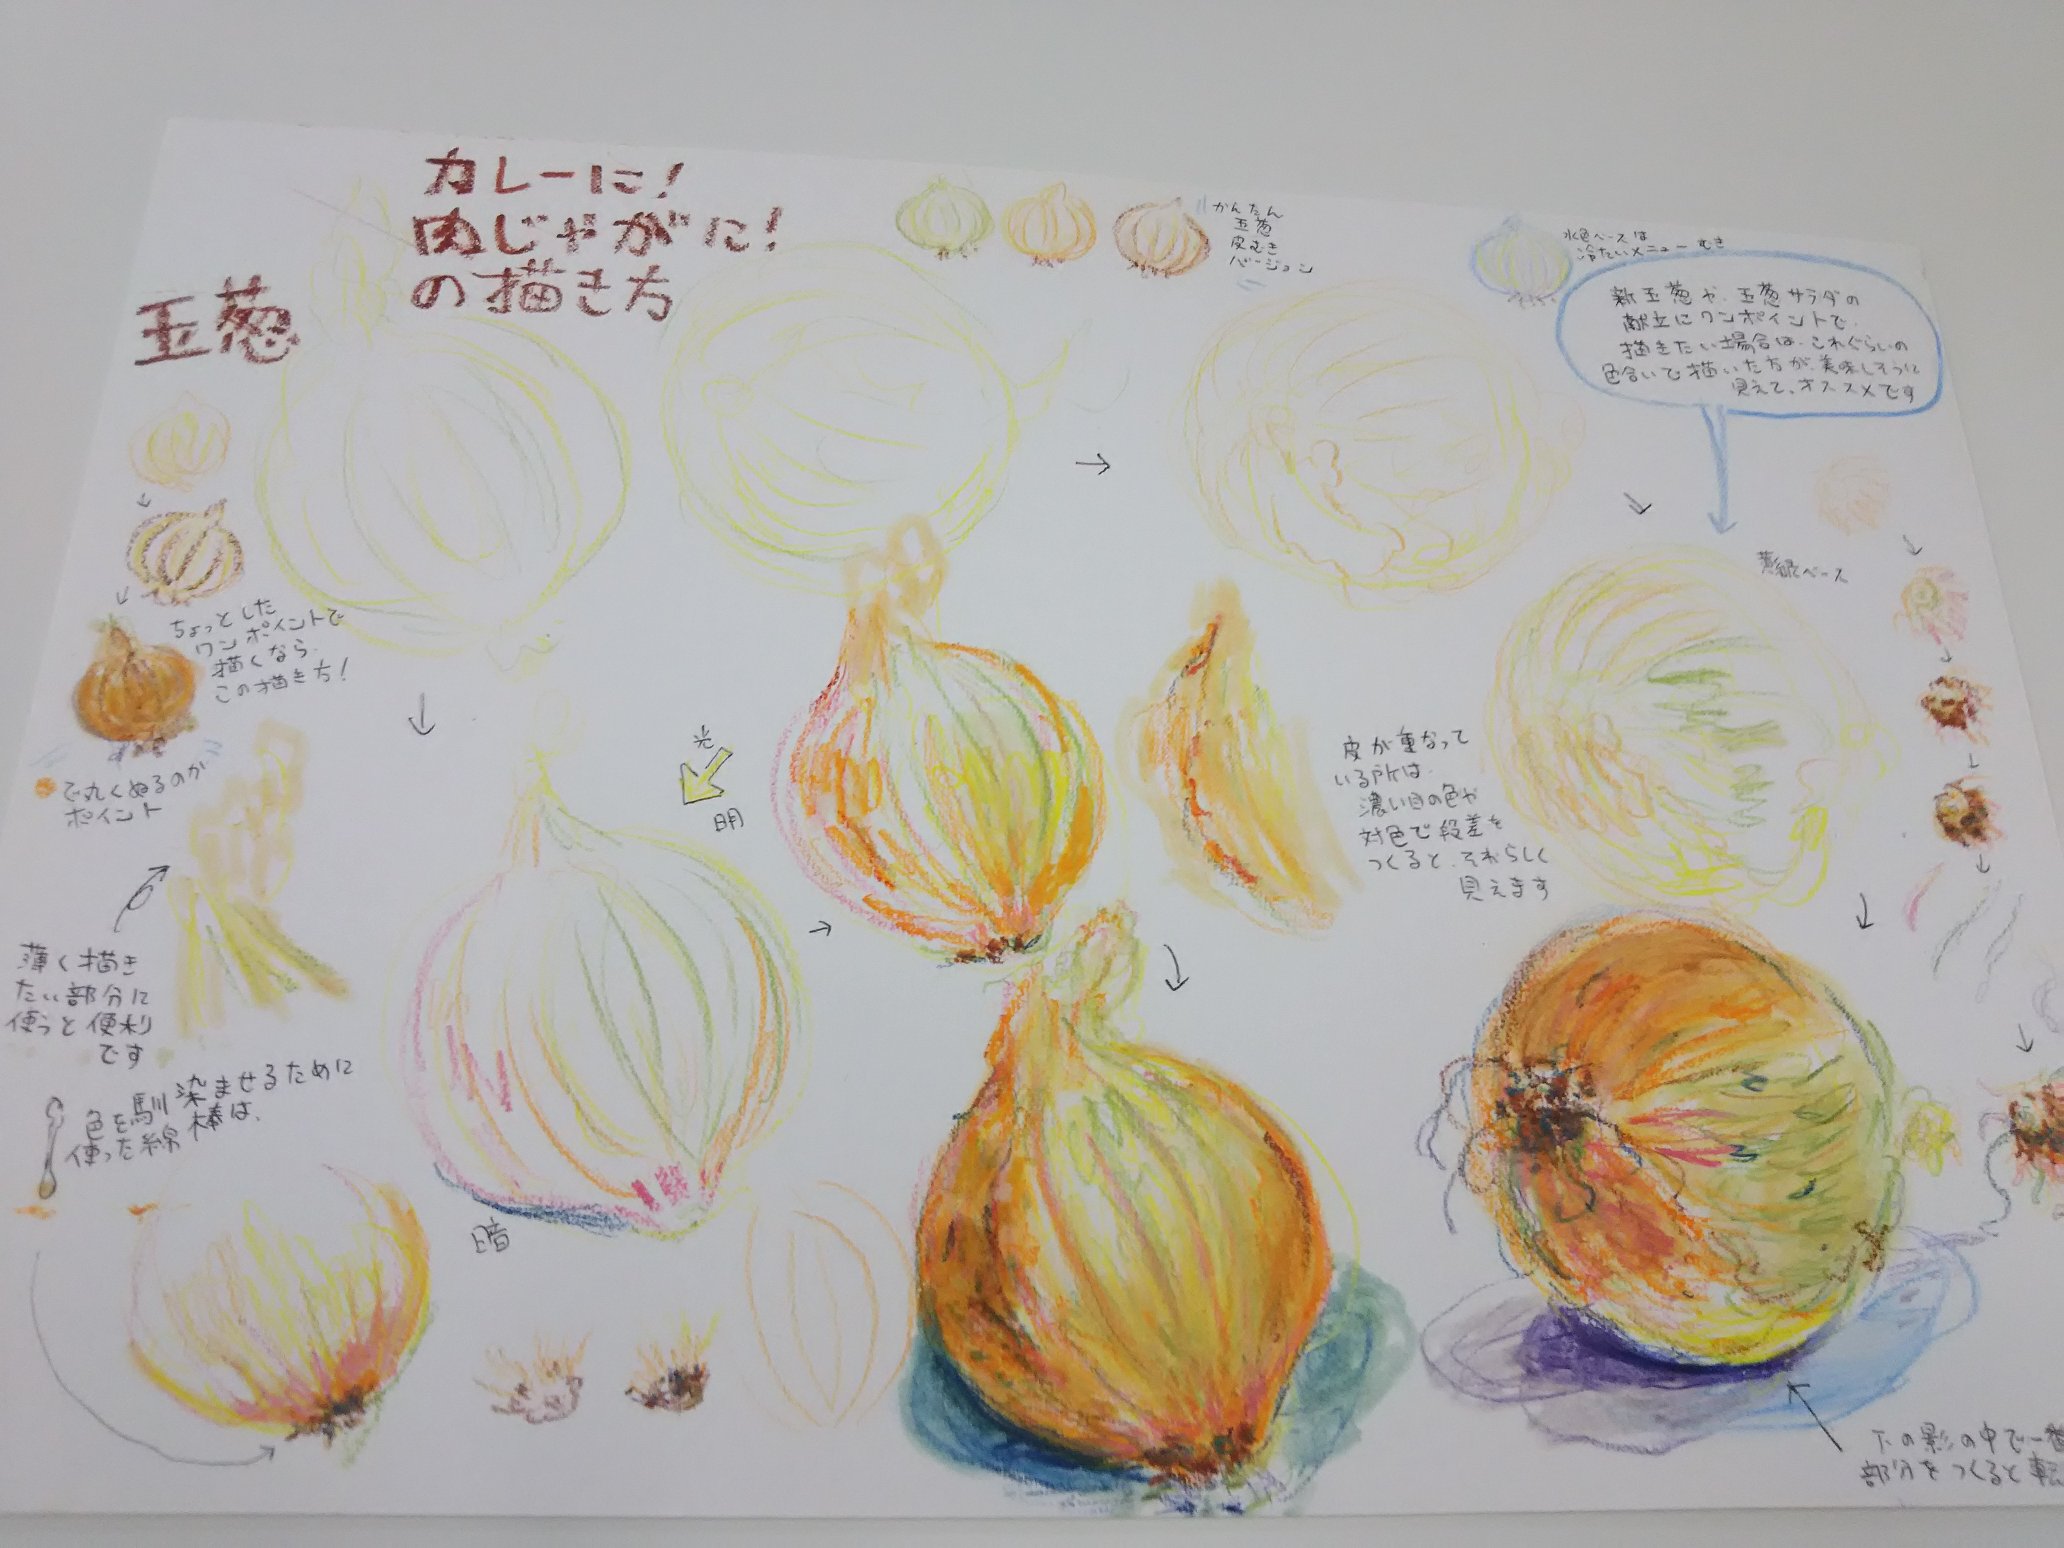 玉葱
カレーに!
肉じゃがに!
の描き方
かんたん
玉葱
皮むき
バージョン
水色ベースは
冷たいメニューむき
新玉葱や、玉葱サラダの
献立にワンポイントで、
描きたい場合は、これぐらいの
色合いで描いた方が、美味しそうに
見えて、オススメです
ちょっとした
ワンポイントで
描くなら、
この描き方!
で丸くぬるのが
ポイント
薄く描き
たい部分に
使うと便利
です
色を馴染ませるために
使った綿棒は、
光
明
暗
皮が重なって
いる所は、
濃い目の色や
対色で段差を
つくると、それらしく
見えます
黄緑ベース
下の影の中で一番
部分をつくると